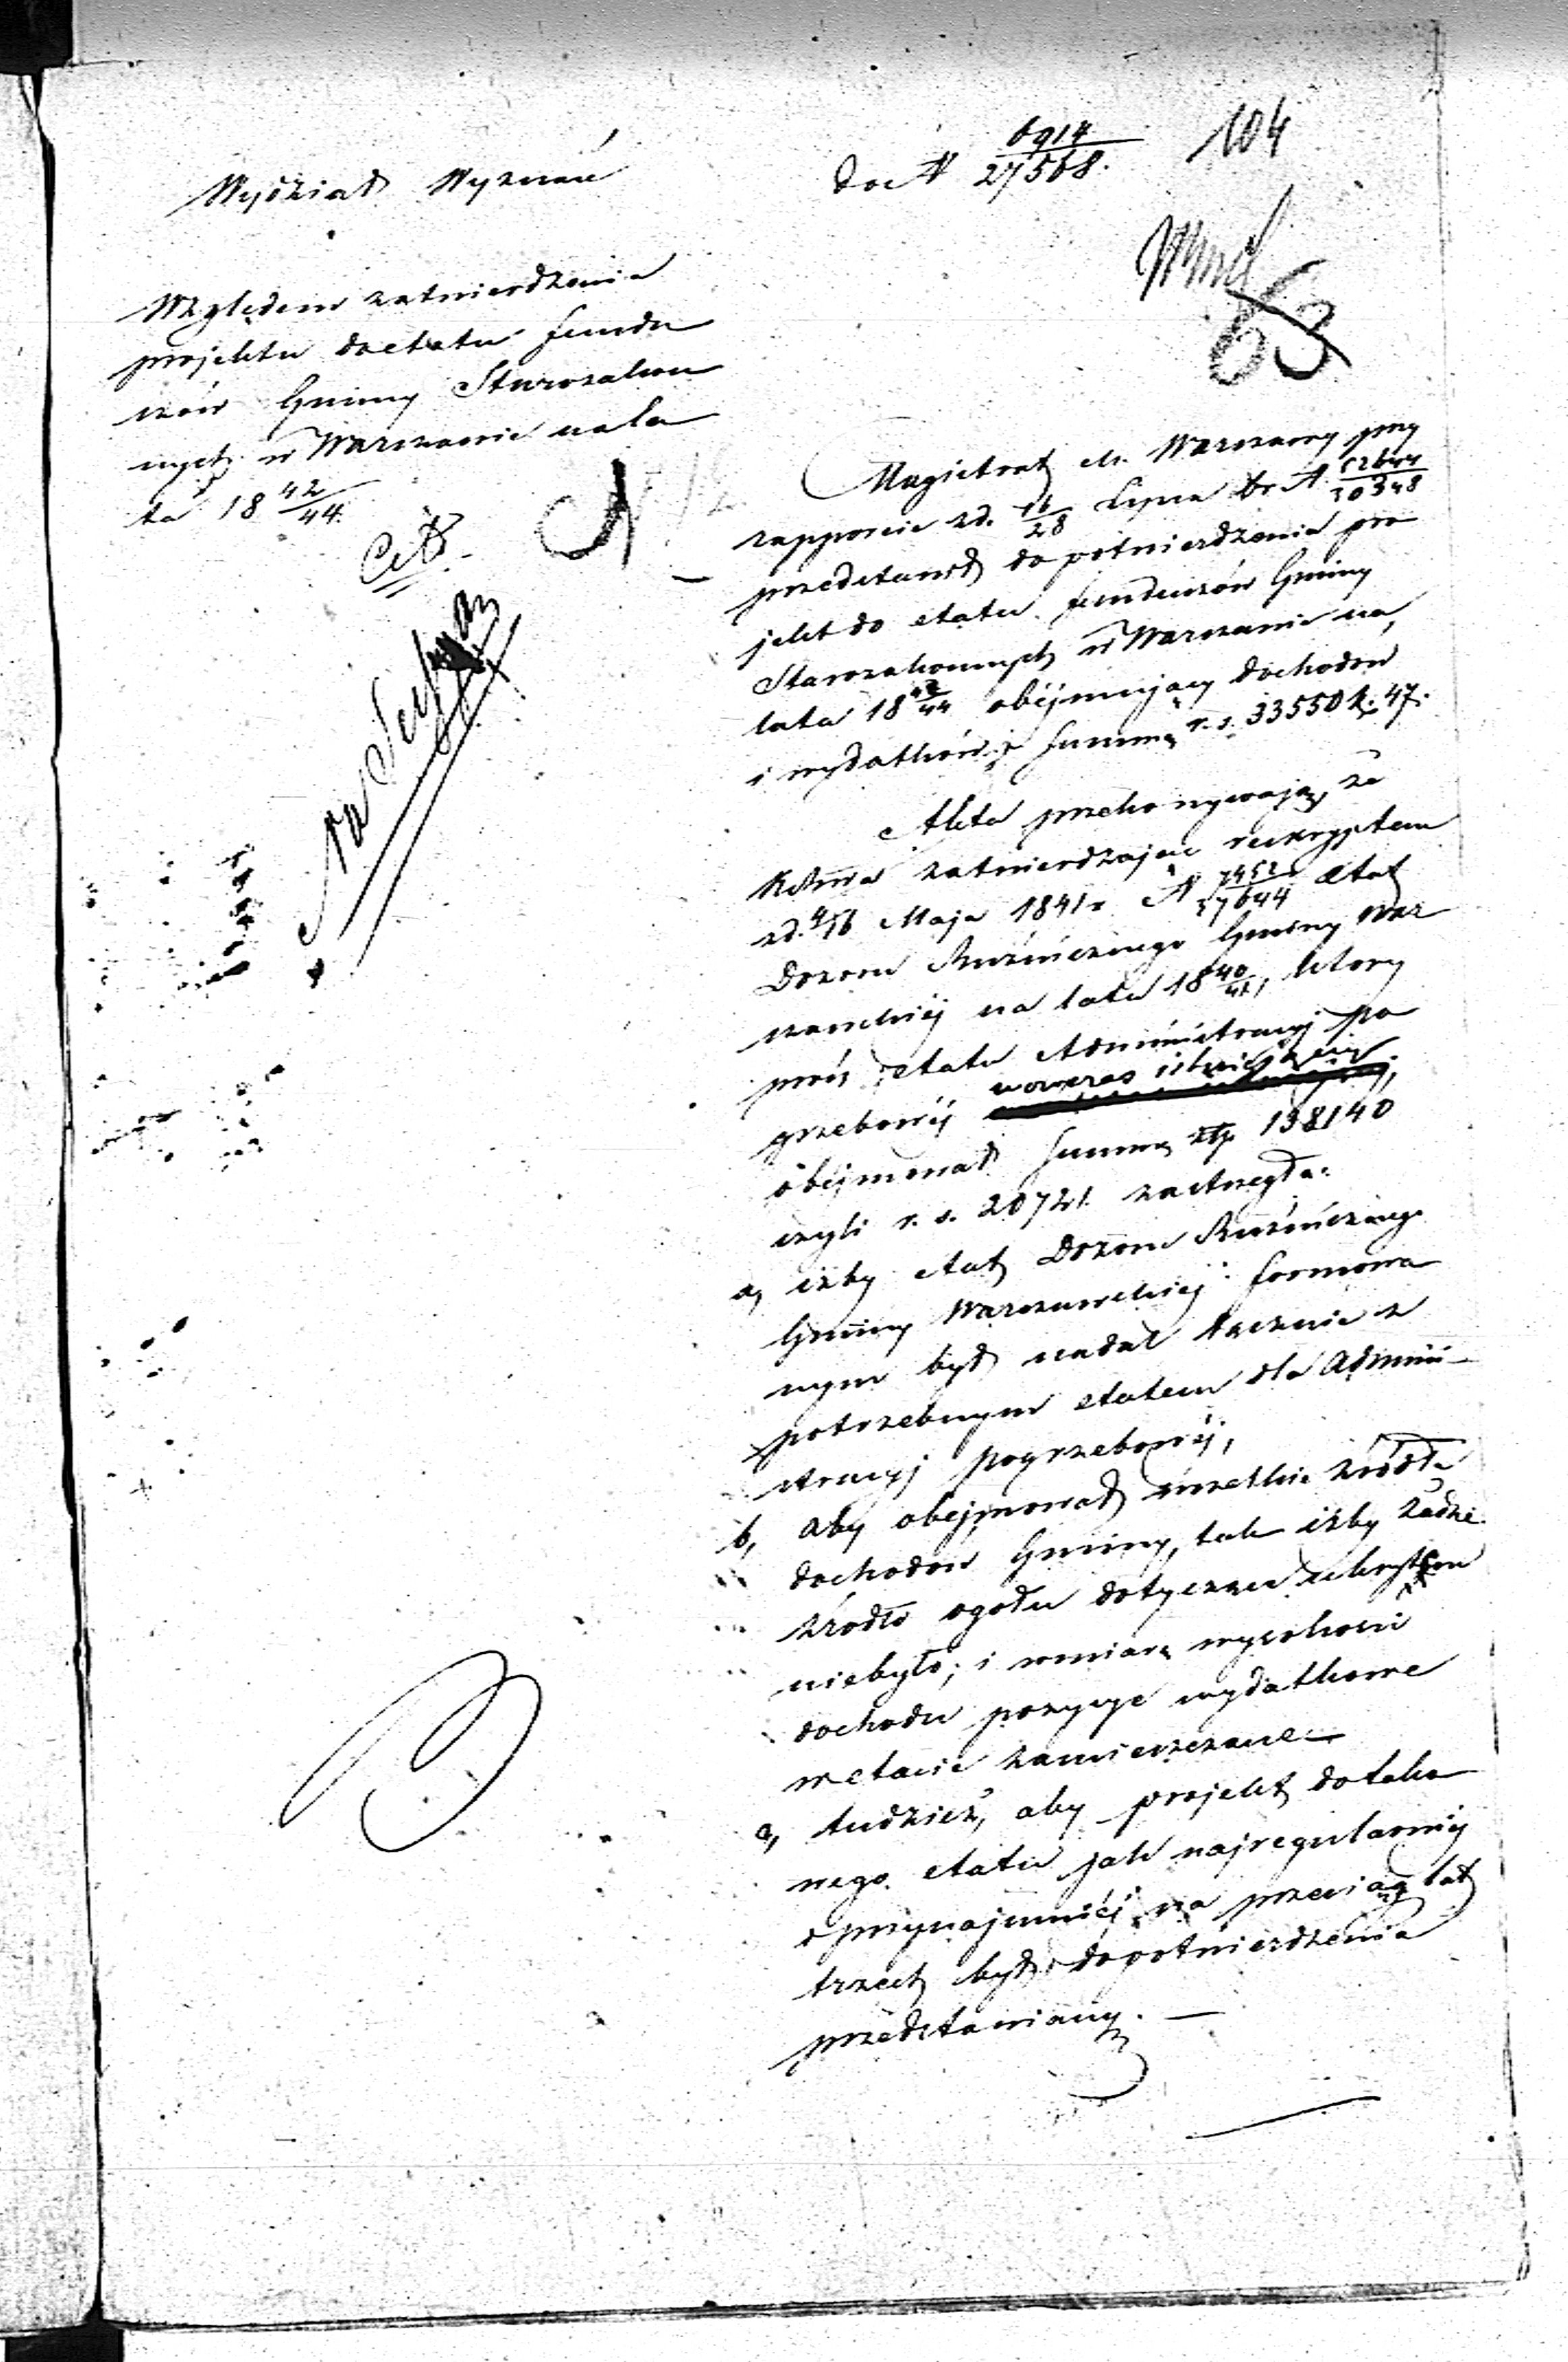 Wydział Wyznań
do № 6914/27568.
104
63
Względem zatwierdzenia
projektu do etatu fundu
szów Gminy Starozakon
nych w Warszawie na la
ta 18 42/44.
Magistrat m. Warszawy przy
rapporcie z d. 16/28 Lipca br № 52644/20348
przedstawił do potwierdzenia pro
jekt do etatu funduszów Gminy
Starozakonnych w Warszawie na
lata 18 42/44 obejmujący dochodów
i wydatków summę r. s. 33550 k. 47.
Akta przekonywają, że
zatwierdzając reskryptem
z d. 4/16 Maja 1841 r № 7452/27644 etat
Dozoru Bużniczego Gminy War
szawskiéj na lata 18 40/41, który
prócz etatu Administracyj po
grzebowéj wowczas istniejącej
obejmował summę złp. 138140
czyli r. s. 20721. zastrzegła:
a, iżby etat Dozoru Bużniczego
Gminy Warszawskiéj formowa
nym był nadal łącznie z
potrzebnym etatem dla Admini-
stracyj pogrzebowéj,
b, aby obejmował wszelkie źródła
dochodów Gminy, tak iżby żadne
źródło ogołu dotyczące ukrytem
niebyło; i w miarę wysokości
dochodu pozycye wydatkowe
w etacie zamieszczane —
c, tudzież, aby projekt do tako
wego etatu jak najregularniéj
a przynajmniéj na przeciąg lat
trzech był do potwierdzenia
przedstawiany. —